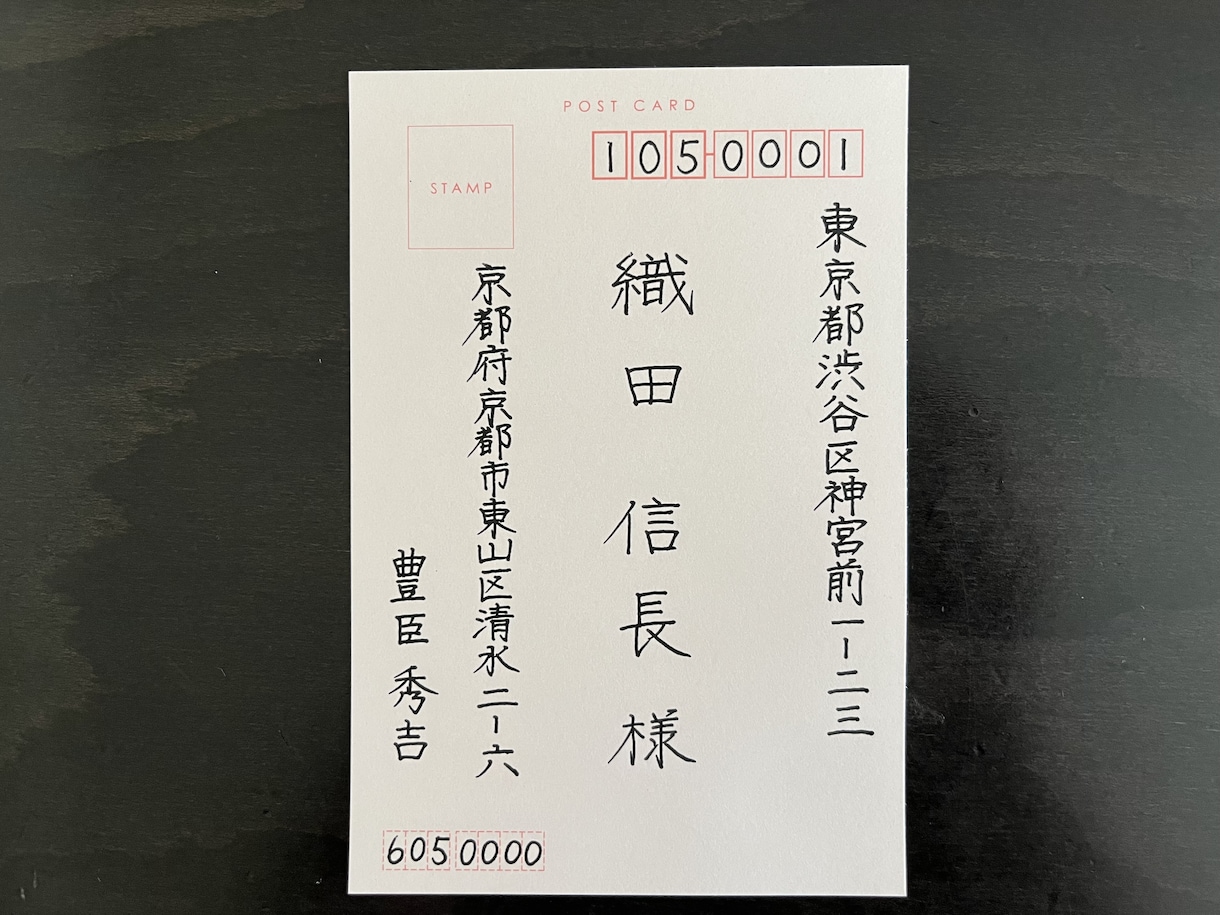 POST CARD
105-0001
東京都渋谷区神宮前一ー二三
織田 信長 様
STAMP
京都府京都市東山区清水二ー六
豊臣 秀吉
6050000